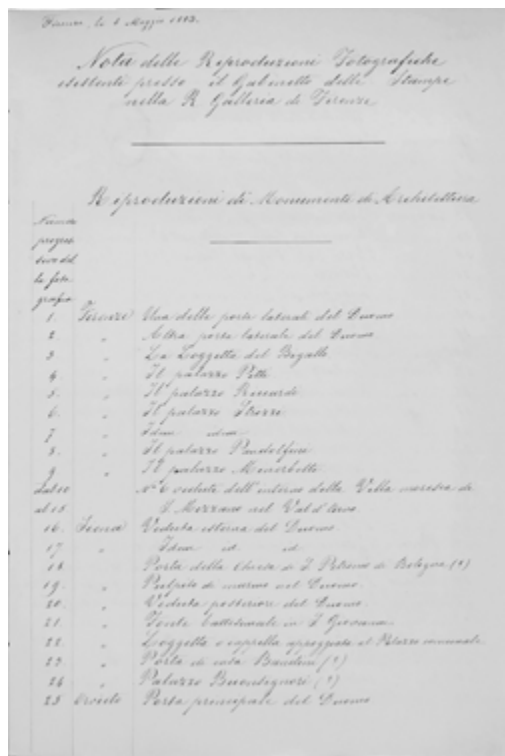 Firenze, li 6 Maggio 1883.
Nota delle Riproduzioni Fotografiche
esistenti presso il Gabinetto delle Stampe
nella R. Galleria di Firenze
Riproduzioni di Monumenti di Architettura
Numero
progres-
sivo del
la foto
grafia
1. Firenze Una delle porte laterali del Duomo
2 " Altra porta laterale del Duomo
3 " La Loggetta del Bigallo
4. " Il palazzo Pitti
5. " Il palazzo Riccardi
6. " Il palazzo Strozzi
7 " Idem idem
8. " Il palazzo Pandolfini
9 " Il palazzo
Dal 10 No 6 vedute dell'interno della Villa di
al 15 S. Mezzano nel Val d'Arno
16. Siena Veduta esterna del Duomo
17 " Idem id id
18 " Porta della chiesa di S. Petronio di Bologna (?)
19. " Pulpito di marmo nel Duomo.
20. " Veduta posteriore del Duomo
21. " Fonte battesimale in S. Giovanni
22. " Loggetta o cappella appoggiata al Palazzo
23. " Porta di casa Bandini (?)
24 " Palazzo Buonsignori (?)
25 Orvieto Porta principale del Duomo